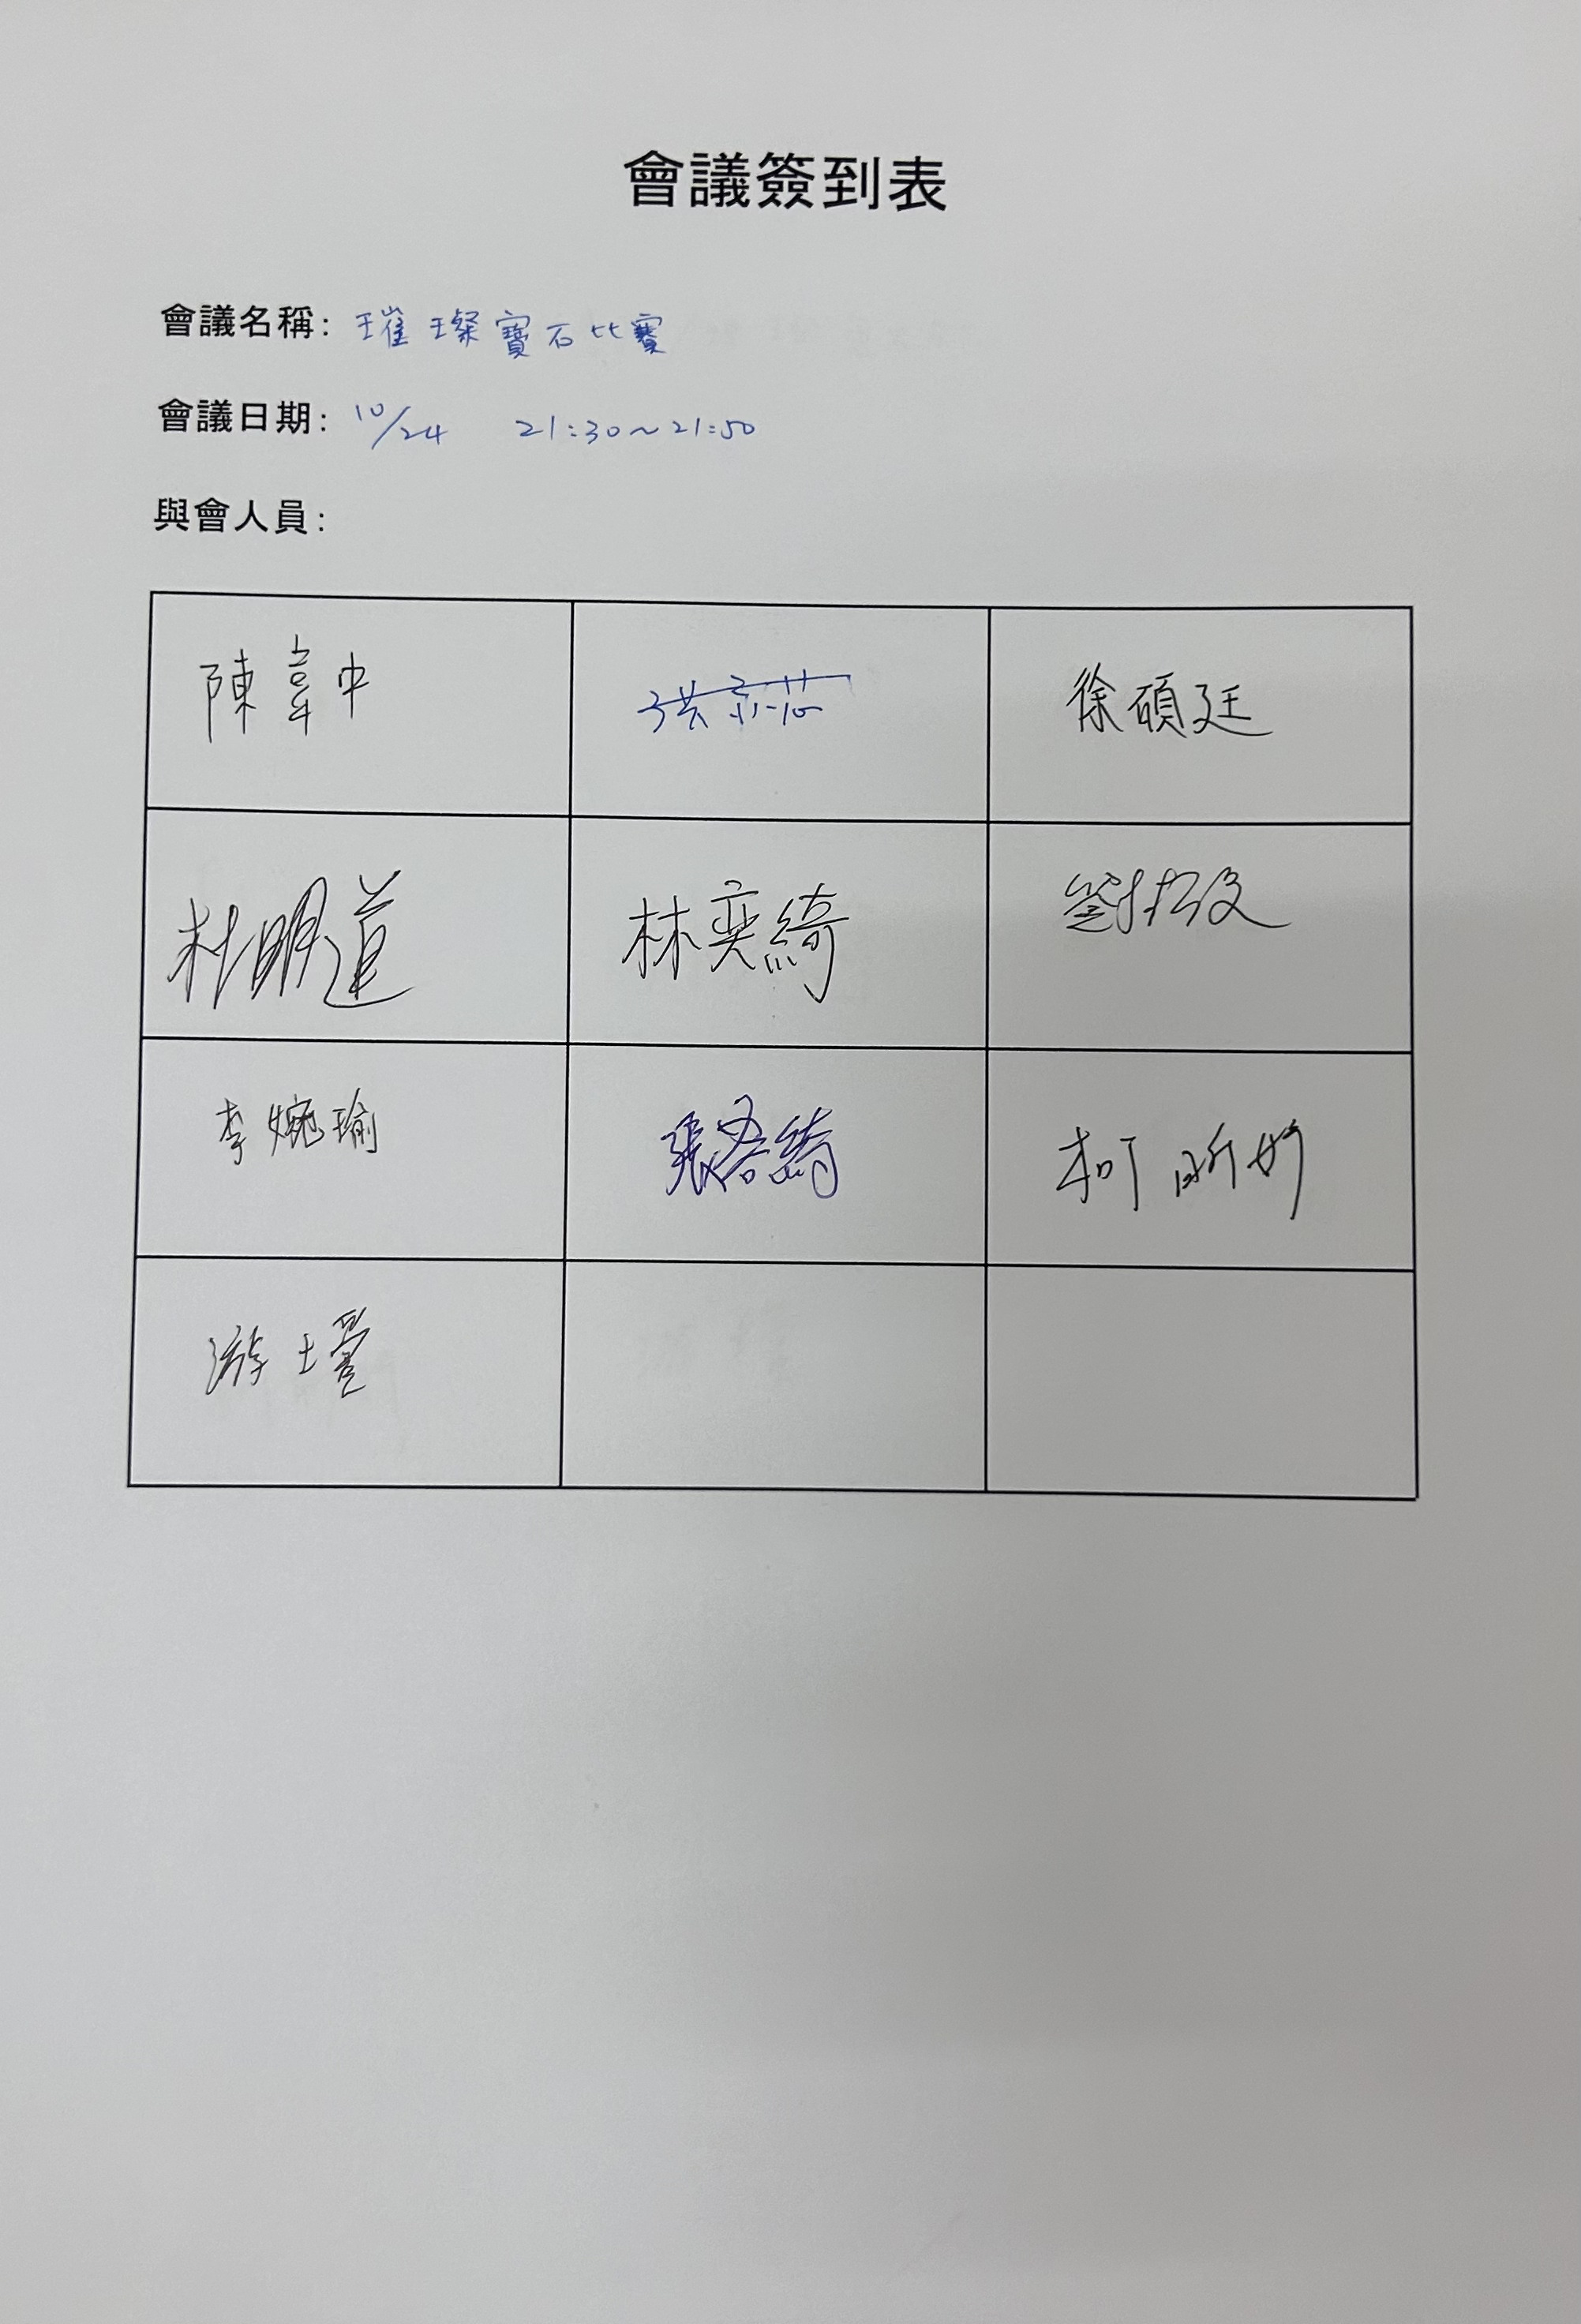 會議簽到表
會議名稱：璀璨寶石比賽
會議日期：10/24 21:30～21:50
與會人員：
陳韋中 洪 徐碩廷
杜明道 林奕綺 劉
李婉瑜 張容綺 柯昕妤
游